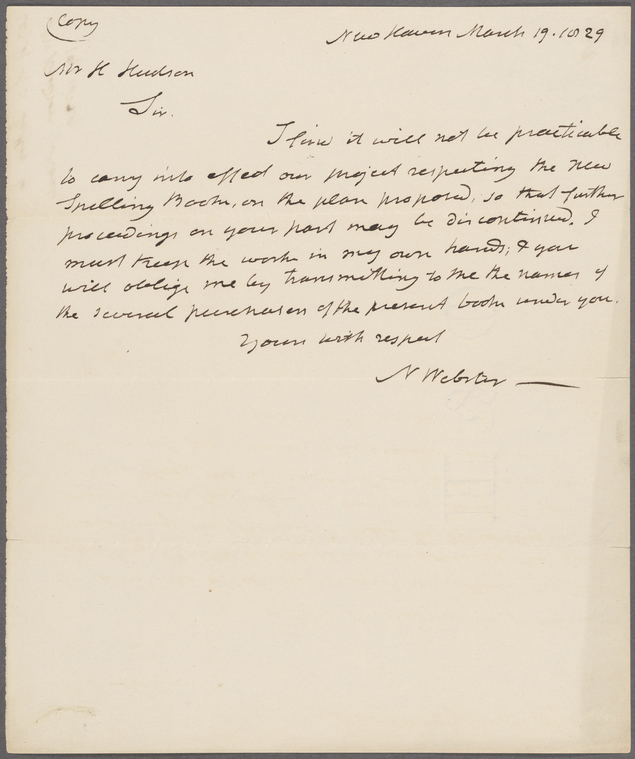 Copy
New Haven March 19. 1829
Mr H Hudson
Sir.
I find it will not be practicable
to carry into effect our project respecting the new
Spelling Book, on the plan proposed, so that further
proceedings on your part may be discontinued. I
must keep the work in my own hands; & you
will oblige me by transmitting to me the names of
the several purchasers of the present book under you.
Yours with respect
N Webster